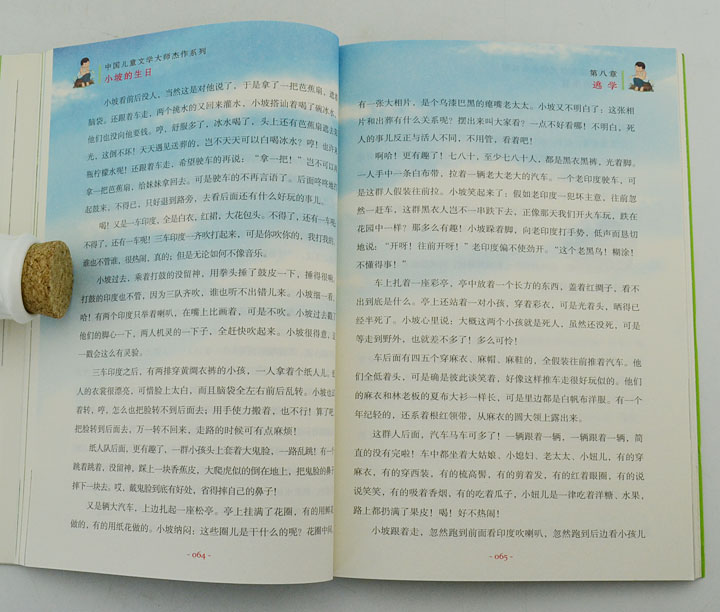 中国儿童文学大师杰作系列
小坡的生日
小坡看前后没人，当然这是对他说了，于是拿了一把芭蕉扇，遮
脑袋，还跟着车走，两个挑水的又回来灌水，小坡搭讪着喝了碗冰水，
他们也没向他要钱。哼，舒服多了，冰水喝了，头上还有芭蕉扇遮去
光，这倒不坏！天天遇见送葬的，岂不天天可以白喝冰水？哼！也许
瓶柠檬水呢！还跟着车走，希望驶车的再说：“拿一把！”岂不可以
拿一把芭蕉扇，给妹妹拿回去。可是驶车的不再言语了。后面咚咚地
起鼓来，不得已，只好退到路旁，去看后面还有什么好玩的事儿。
喝！又是一车印度，全是白衣，红裙，大花包头。不得了，还有一车呢，
不得了，还有一车呢！三车印度一齐吹打起来，可是你吹你的，我打我的，
谁也不管谁，很热闹，真的；但是无论如何不像音乐。
小坡过去，乘着打鼓的没留神，用拳头捶了鼓皮一下，捶得很响。
打鼓的印度也不管，因为三队齐吹，谁也听不出错儿来。小坡细一看，
哈！有两个印度只举着喇叭，在嘴上比画着，可是不吹。小坡过去戳了
他们的脚心一下，两人机灵的一下子，全赶快吹起来。小坡很得意，这
一戳会这么有灵验。
三车印度之后，有两排穿黄绸衣裤的小孩，一人拿着个纸人儿。纸
人的衣裳很漂亮，可惜脸上太白，而且脑袋全左右前后乱转。小坡也
着转，哼，怎么也把脸转不到后面去；用手使力搬着，也不行！算了吧，
把脸转到后面去，万一转不回来，走路的时候可有点麻烦！
纸人队后面，更有趣了，一群小孩头上套着大鬼脸，一路乱跳！有一个
跳着跳着，没留神，踩上一块香蕉皮，大爬虎似的倒在地上，把鬼脸的鼻子
摔下一块去。哎，戴鬼脸到底有好处，省得摔自己的鼻子！
又是辆大汽车，上边扎起一座松亭。亭上挂满了花圈，有的用鲜花
做的，有的用纸花做的。小坡纳闷：这些圈儿是干什么的呢？花圈中间，
- 064 -
第八章
逃学
有一张大相片，是个乌漆巴黑的瘪嘴老太太。小坡又不明白了：这张相
片和出葬有什么关系呢？摆出来叫大家看？一点不好看哪！不明白，死
人的事儿反正与活人不同，不用管，看着吧！
啊哈！更有趣了！七八十，至少七八十人，都是黑衣黑裤，光着脚。
一人手中一条白布带，拉着一辆老大老大的汽车。一个老印度驶车，可
是这群人假装往前拉。小坡笑起来了：假如老印度一犯坏主意，往前忽
然一赶车，这群黑衣人岂不一串跌下去，正像那天我们开火车玩，跌在
花园中一样？那多么有趣！小坡跺着脚，向老印度打手势，低声而恳切
地说：“开呀！往前开呀！”老印度偏不使劲开。“这个老黑鸟！糊涂！
不懂得事！”
车上扎着一座彩亭，亭中放着一个长方的东西，盖着红绸子，看不
出到底是什么。亭上还站着一对小孩，穿着彩衣，可是光着头，晒得已
经半死了。小坡心里说：大概这两个小孩就是死人，虽然还没死，可是
等走到野外，也就差不多了！多么可怜！
车后面有四五个穿麻衣、麻帽、麻鞋的，全假装往前推着汽车。他
们全低着头，可是确是彼此谈笑着，好像这样推车走很好玩似的。他们
的麻衣和林老板的夏布大衫一样长，可是里边都是白帆布洋服。有一个
年纪轻的，还系着根红领带，从麻衣的圆大领上露出来。
这群人后面，汽车马车可多了！一辆跟着一辆，一辆跟着一辆，简
直的没有完啦！车中都坐着大姑娘、小媳妇、老太太、小妞儿，有的穿
麻衣，有的穿西装，有的梳高髻，有的剪着发，有的红着眼圈，有的说
说笑笑，有的吸着香烟，有的吃着瓜子，小妞儿是一律吃着洋糖、水果，
路上都扔满了果皮！喝！好不热闹！
小坡跟着走，忽然跑到前面看印度吹喇叭，忽然跑到后边看小孩儿
- 065 -